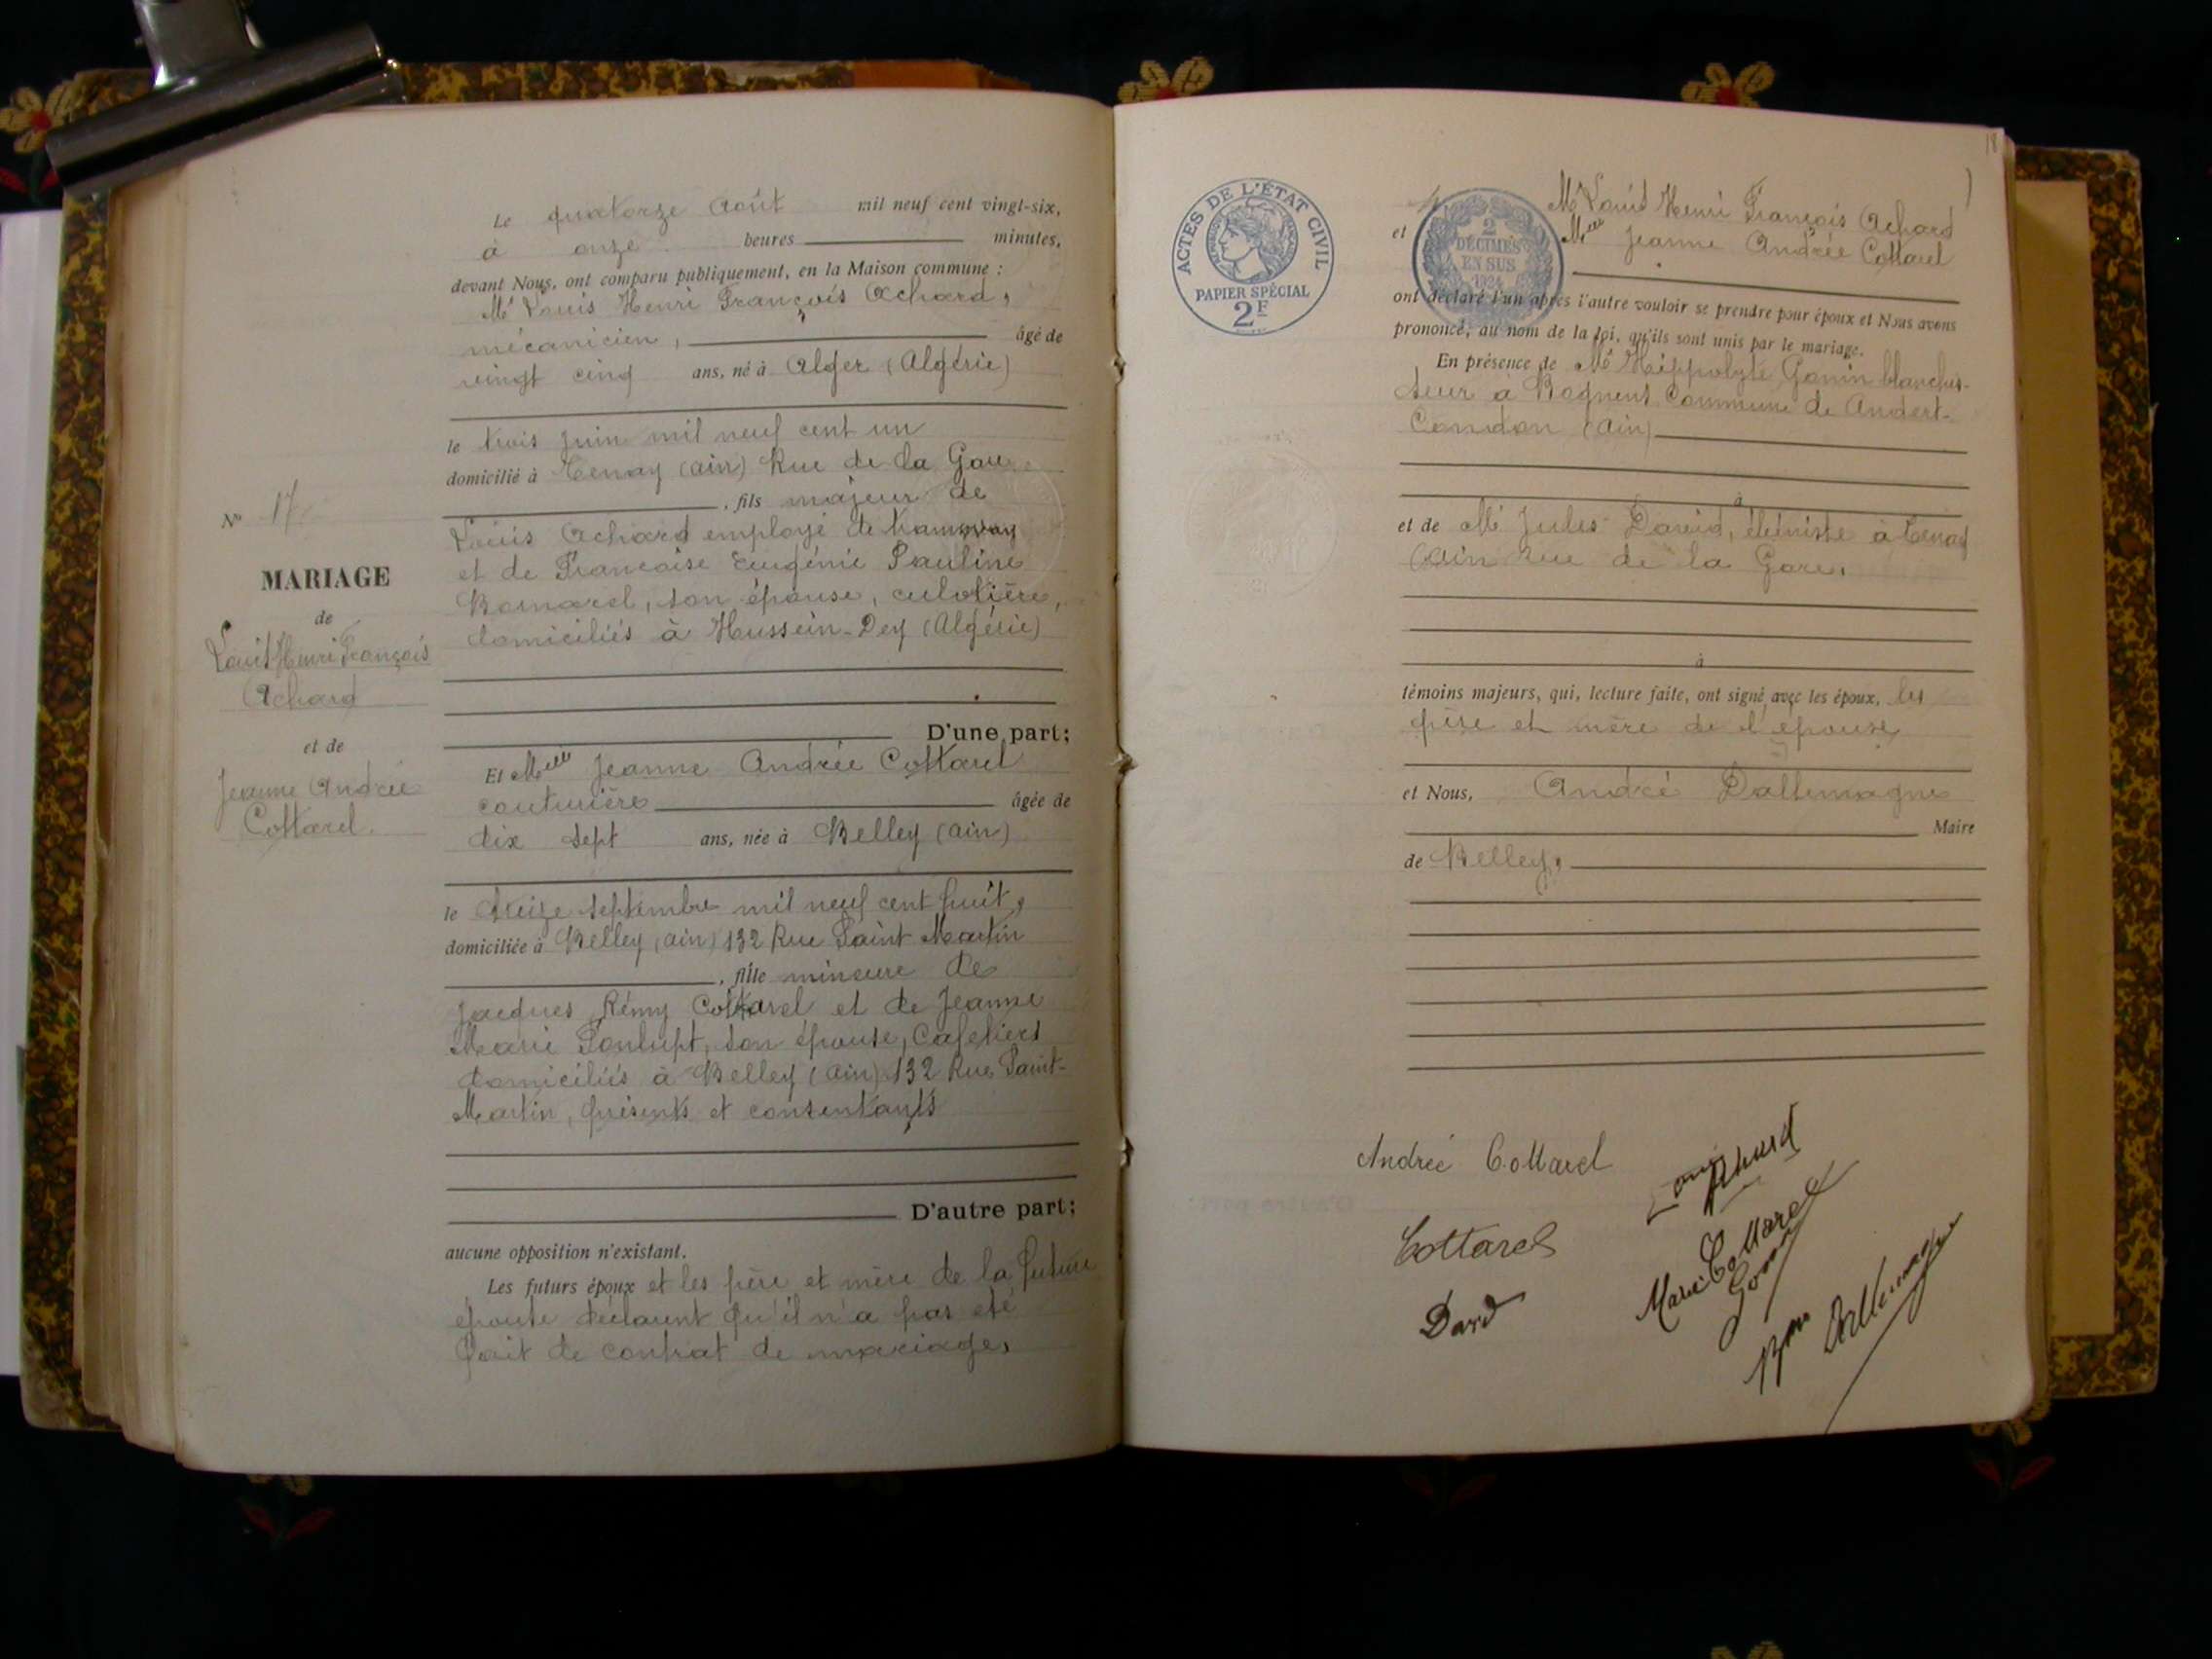 Le quatorze Août mil neuf cent vingt-six,
à onze heures minutes,
devant Nous, ont comparu publiquement, en la Maison commune :
Mr Louis Henri François Achard,
mécanicien, âgé de
vingt cinq ans, né à Alger (Algérie)
le trois juin mil neuf cent un
domicilié à Tenay (Ain) Rue de la Gare
, fils majeur de
Louis Achard employé de tramway
et de Françoise Eugénie Pauline
son épouse, culotière,
domiciliés à Hussein-Dey (Algérie)
D'une part;
Et Melle Jeanne Andrée Cottarel
couturière âgée de
dix sept ans, née à Belley (Ain)
le septembre mil neuf cent huit,
domiciliée à Belley (Ain) 132 Rue Saint Martin
, fille mineure de
Jacques Rémy Cottarel et de Jeanne
Marie Ponlupt, son épouse, Cafetiers
domiciliés à Belley (Ain) 132 Rue Saint-
Martin, présents et consentants
D'autre part;
aucune opposition n'existant.
Les futurs époux et les père et mère de la future
épouse déclarent qu'il n'a pas été
fait de contrat de mariage,
No 17
MARIAGE
de
Louis Henri François
Achard
et de
Jeanne Andrée
Cottarel.
18
ACTES DE L'ÉTAT CIVIL
PAPIER SPÉCIAL
2F
2
DÉCIMES
EN SUS
1924
Mr Louis Henri François Achard
et Melle Jeanne Andrée Cottarel
ont déclaré l'un après l'autre vouloir se prendre pour époux et Nous avons
prononcé, au nom de la loi, qu'ils sont unis par le mariage.
En présence de Mr Hippolyte Gonin blanchis-
seur à Commune de Andert-
Condon (Ain)
à
et de Mr Jules David, à Tenay
(Ain rue de la Gare,
à
témoins majeurs, qui, lecture faite, ont signé avec les époux, les
père et mère de l'épouse
et Nous, André Dallemagne
Maire
de Belley,
Andrée Cottarel
Louis Achard
Cottarel
Marie Cottarel
Gonin
David
Dallemagne